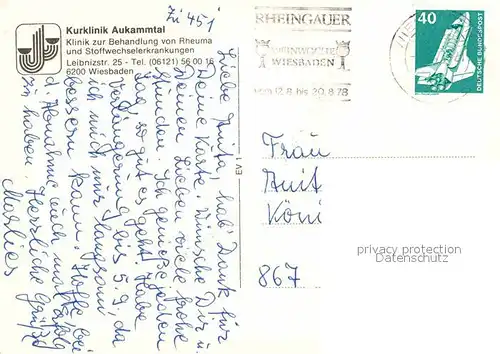 Zi 451
Kurklinik Aukammtal
Klinik zur Behandlung von Rheuma
und Stoffwechselerkrankungen
Leibnizstr. 25 - Tel. (06121) 56 00 16
6200 Wiesbaden
Liebe Anita, hab Dank für
Deine Karte. Wünsche Dir u.
Deinen Lieben viele frohe
Stunden. Ich genieße jeden
Tag so gut es geht. Habe
Verlängerung bis 5.9., da
ich mich nur langsam
bessern kann. Hoffe bei
d. Abnahme auch
zu haben. Herzliche Grüße
Marlies
EV 1
RHEINGAUER
WEINWOCHE
WIESBADEN
vom 12.8. bis 20.8.78
40
DEUTSCHE BUNDESPOST
Frau
Anit
Köni
867
privacy protection
Datenschutz